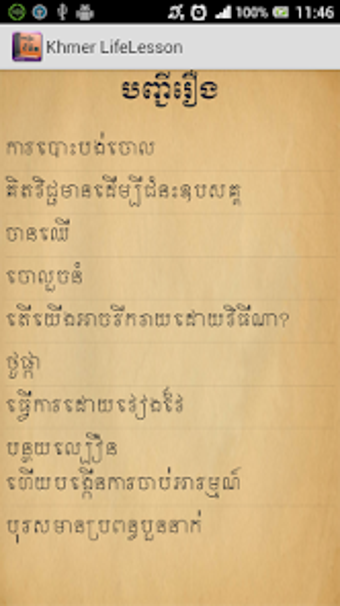 100% 11:46
Khmer LifeLesson
បញ្ជីរឿង
ការបោះបង់ចោល
គិតវិជ្ជមានដើម្បីជំនះឧបសគ្គ
ចានឈើ
ចោលួចនំ
តើយើងអាចរីករាយដោយវិធីណា?
ថូផ្កា
ធ្វើការដោយវៀងវៃ
បន្ថយល្បឿន
ហើយបង្កើនការចាប់អារម្មណ៍
បុរសមានប្រពន្ធបួននាក់